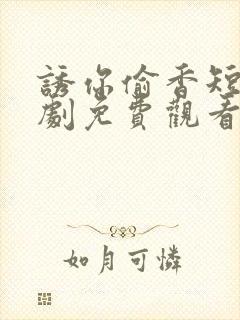 誘你偷香短
劇免費觀看
如月可憐